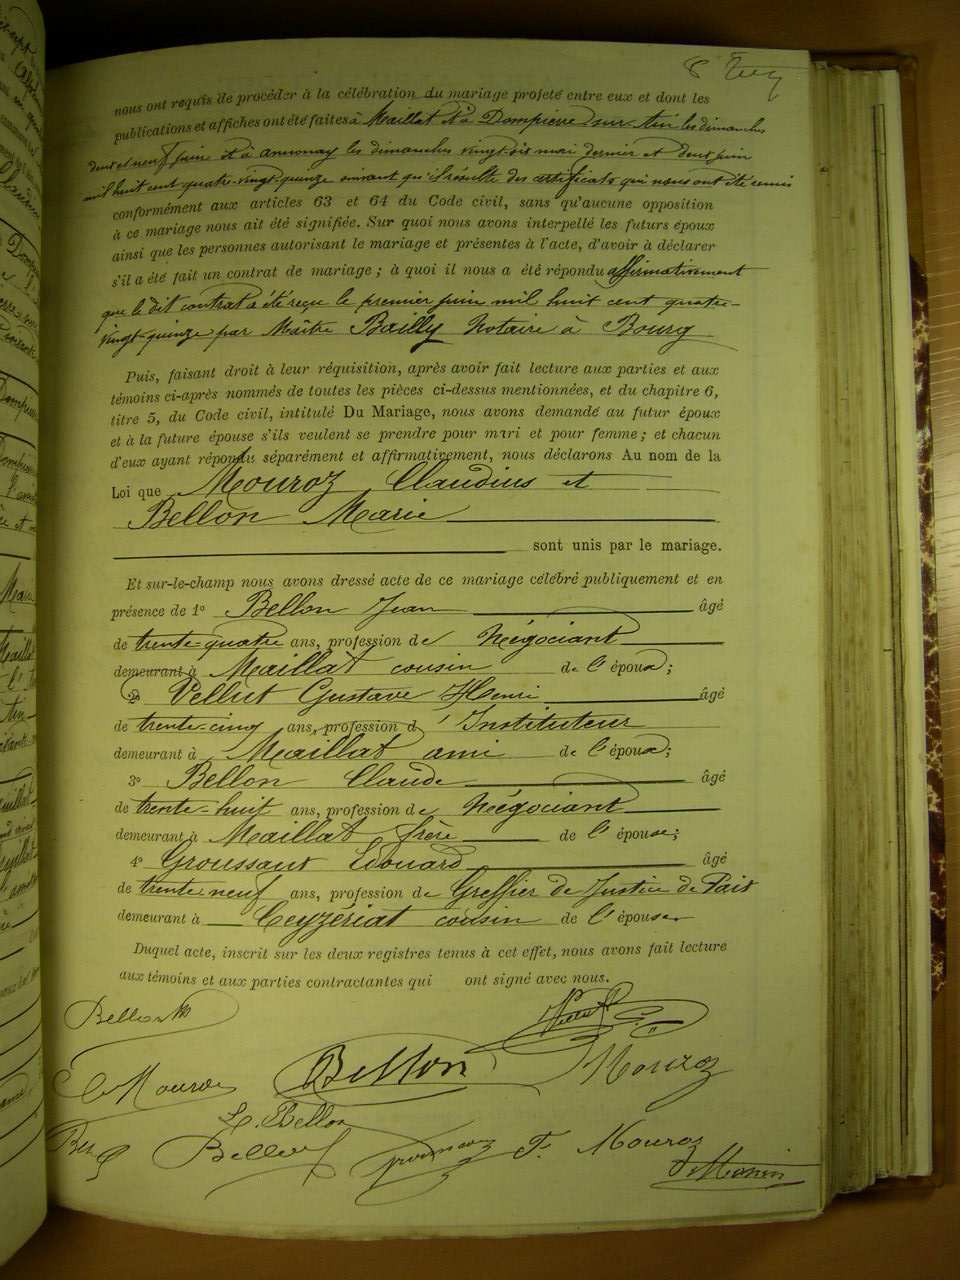 8
nous ont requis de procéder à la célébration du mariage projeté entre eux et dont les
publications et affiches ont été faites à Maillat et à Dompierre sur Ain les dimanches
deux et neuf juin et à annonay les dimanches vingt-six mai dernier et deux juin
mil huit cent quatre-vingt-quinze suivant qu'il résulte des certificats qui nous ont été remis
conformément aux articles 63 et 64 du Code civil, sans qu'aucune opposition
à ce mariage nous ait été signifiée. Sur quoi nous avons interpellé les futurs époux
ainsi que les personnes autorisant le mariage et présentes à l'acte, d'avoir à déclarer
s'il a été fait un contrat de mariage ; à quoi il nous a été répondu affirmativement
que le dit contrat a été reçu le premier juin mil huit cent quatre-
vingt-quinze par Maître Bailly Notaire à Bourg
Puis, faisant droit à leur réquisition, après avoir fait lecture aux parties et aux
témoins ci-après nommés de toutes les pièces ci-dessus mentionnées, et du chapitre 6,
titre 5, du Code civil, intitulé Du Mariage, nous avons demandé au futur époux
et à la future épouse s'ils veulent se prendre pour mari et pour femme ; et chacun
d'eux ayant répondu séparément et affirmativement, nous déclarons Au nom de la
Loi que Mouroz Claudius et
Bellon Marie
sont unis par le mariage.
Et sur-le-champ nous avons dressé acte de ce mariage célébré publiquement et en
présence de 1º Bellon Jean âgé
de trente-quatre ans, profession de Négociant
demeurant à Maillat cousin de l'épouse ;
2º Velliut Gustave Henri âgé
de trente-cinq ans, profession d'Instituteur
demeurant à Maillat ami de l'épouse ;
3º Bellon Claude âgé
de trente-huit ans, profession de Négociant
demeurant à Maillat frère de l'épouse ;
4º Groussaut Edouard âgé
de trente-neuf ans, profession de Greffier de Justice de Paix
demeurant à Ceyzériat cousin de l'épouse
Duquel acte, inscrit sur les deux registres tenus à cet effet, nous avons fait lecture
aux témoins et aux parties contractantes qui ont signé avec nous.
Bellon
C Mouroz Bellon Mouroz
Bellon
Bellon F. Mouroz